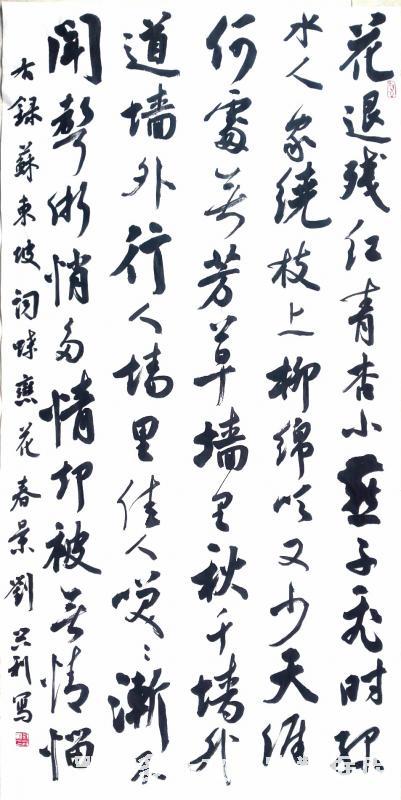 花退残红青杏小燕子飞时
水人家繞枝上柳绵吹又少天涯
何處無芳草墙里秋千墙外
道墙外行人墙里佳人笑〻漸不
闻聲渐悄多情却被無情惱
右録蘇東坡词蝶戀花春景劉兴利寫